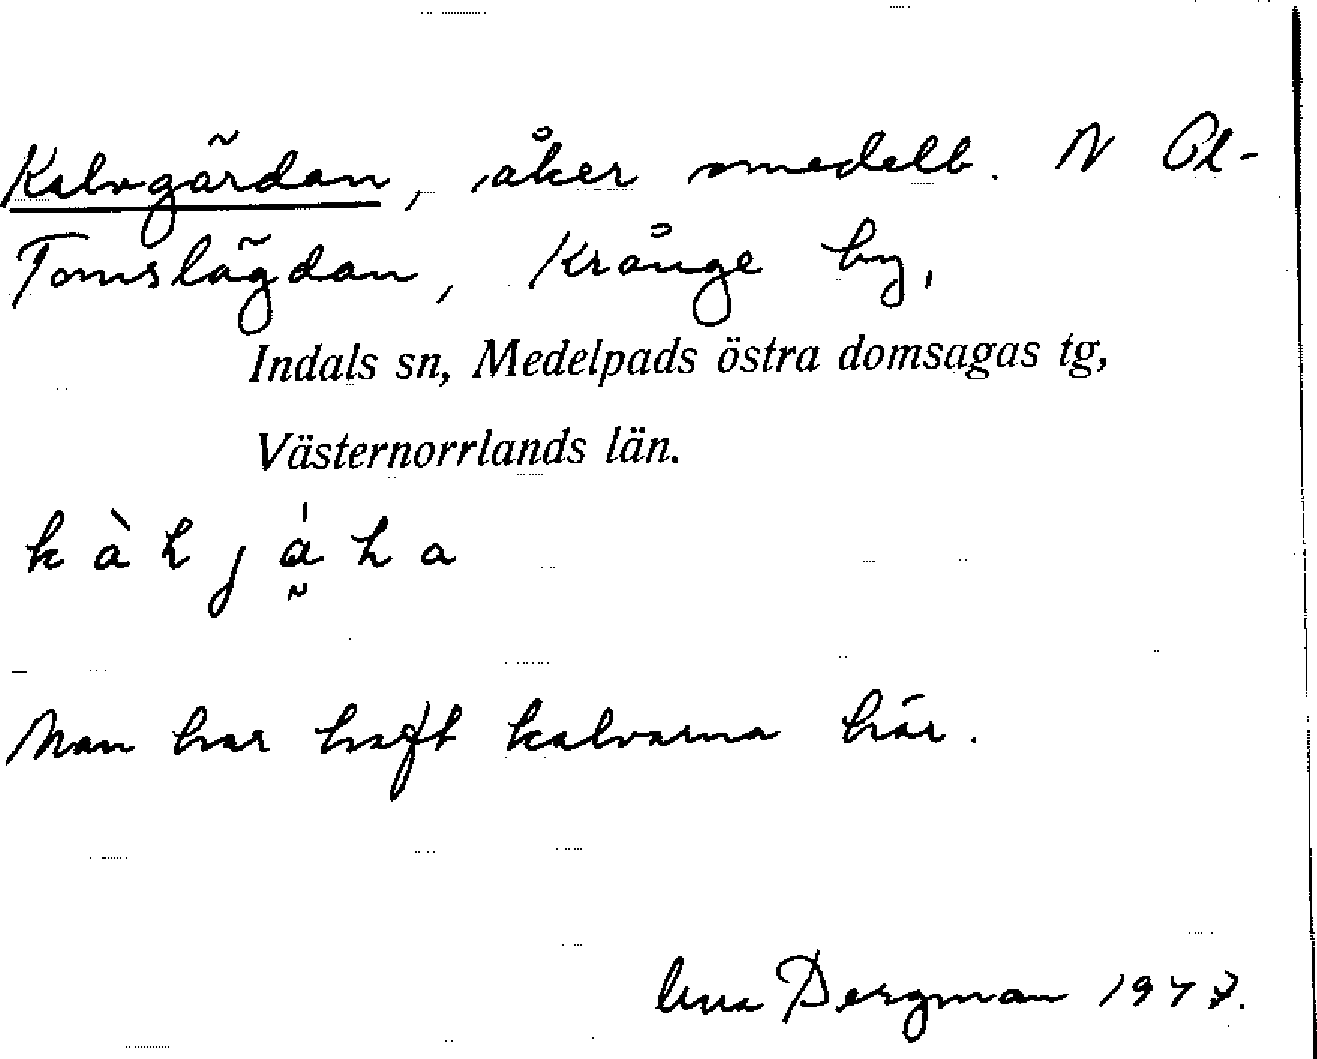 Kalvgärdan, åker medelb. N Ol-
Tomslägdan, Krånge by,
Indals sn, Medelpads östra domsagas tg,
Västernorrlands län.
Man har haft kalvarna här.
Bergman 1947.